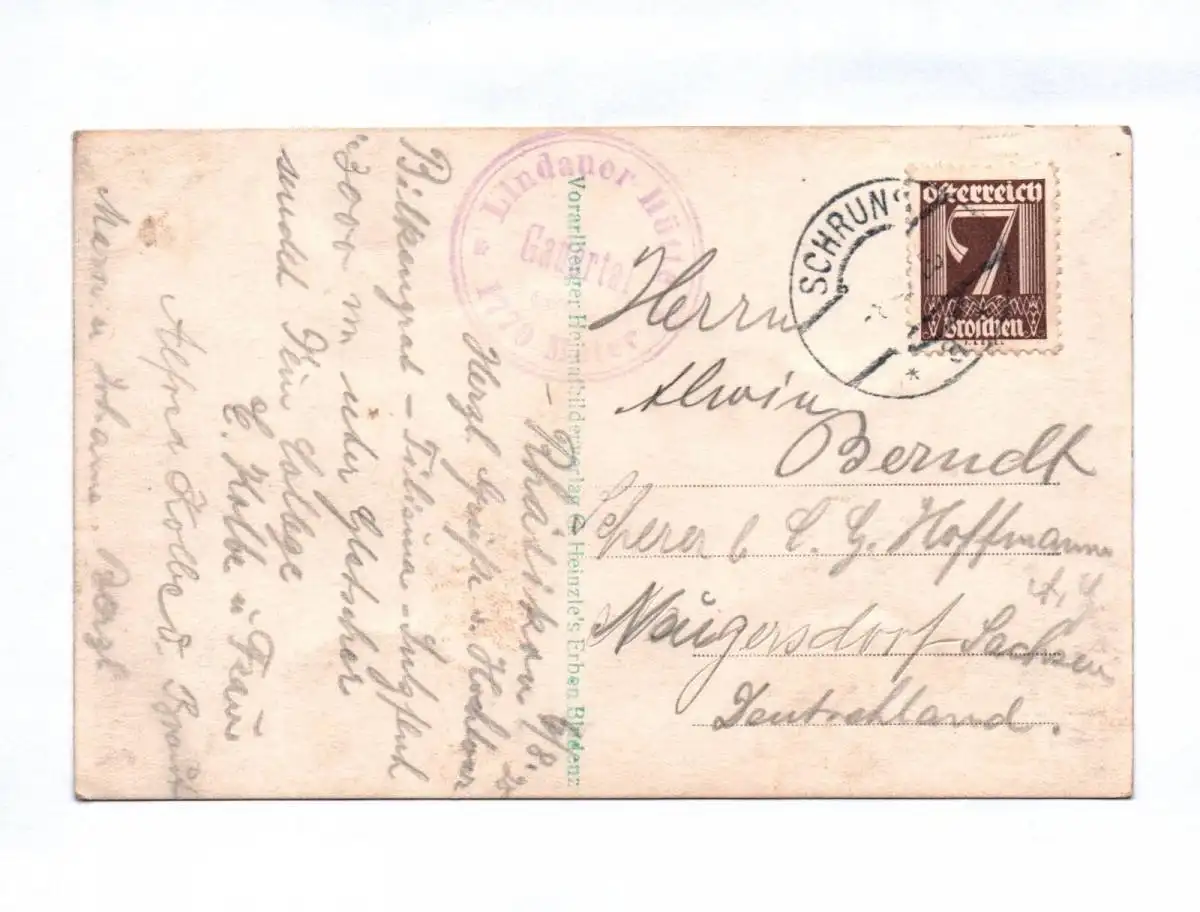 Lindauer Hütte
Gauertal
1770 Meter
Vorarlberger Heimatbilderverlag Heinzle's Erben Bludenz
SCHRUNS
Österreich
7
Groschen
Herrn
Alwin
Berndt
Scherer b C. G. Hoffmann
A. G.
Neugersdorf Sachsen
Deutschland.
Rhätikon, 6/8.
Herzl. Grüße v. Hochtour
Bilkengrat – Tilisuna – Sulzfluh
3000 m über Gletscher
sendet Dein College
E. Kolbe u Frau
Alfred Kolbe